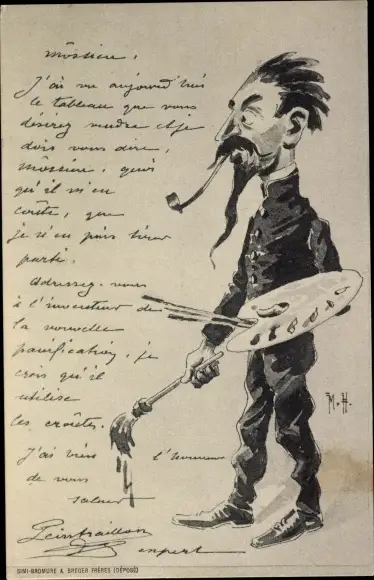 môssieu,
J'ai vu aujourd'hui
le tableau que vous
désirez vendre et je
dois vous dire,
môssieu, quoi
qu'il m'en
coûte, que
je n'en puis tirer
parti.
Adressez-vous
à l'inventeur de
la nouvelle
panification, je
crois qu'il
utilise
les croûtes.
J'ai bien l'honneur
de vous
saluer
Peintraillon
expert
M.H.
SIMI-BROMURE A. BREGER FRÈRES (DÉPOSÉ)